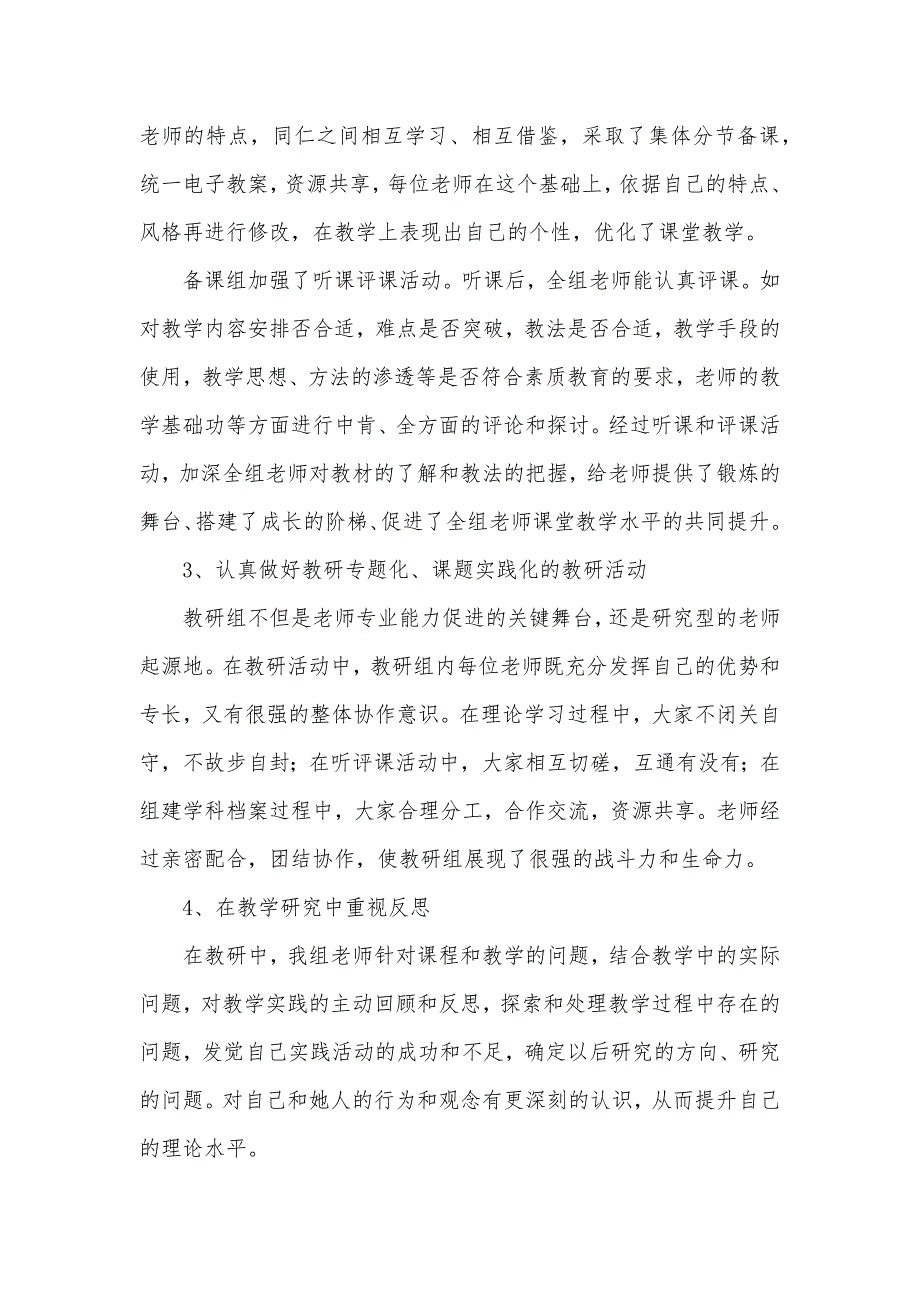 老师的特点，同仁之间相互学习、相互借鉴，采取了集体分节备课，
统一电子教案，资源共享，每位老师在这个基础上，依据自己的特点、
风格再进行修改，在教学上表现出自己的个性，优化了课堂教学。
备课组加强了听课评课活动。听课后，全组老师能认真评课。如
对教学内容安排否合适，难点是否突破，教法是否合适，教学手段的
使用，教学思想、方法的渗透等是否符合素质教育的要求，老师的教
学基础功等方面进行中肯、全方面的评论和探讨。经过听课和评课活
动，加深全组老师对教材的了解和教法的把握，给老师提供了锻炼的
舞台、搭建了成长的阶梯、促进了全组老师课堂教学水平的共同提升。
3、认真做好教研专题化、课题实践化的教研活动
教研组不但是老师专业能力促进的关键舞台，还是研究型的老师
起源地。在教研活动中，教研组内每位老师既充分发挥自己的优势和
专长，又有很强的整体协作意识。在理论学习过程中，大家不闭关自
守，不故步自封；在听评课活动中，大家相互切磋，互通有没有；在
组建学科档案过程中，大家合理分工，合作交流，资源共享。老师经
过亲密配合，团结协作，使教研组展现了很强的战斗力和生命力。
4、在教学研究中重视反思
在教研中，我组老师针对课程和教学的问题，结合教学中的实际
问题，对教学实践的主动回顾和反思，探索和处理教学过程中存在的
问题，发觉自己实践活动的成功和不足，确定以后研究的方向、研究
的问题。对自己和她人的行为和观念有更深刻的认识，从而提升自己
的理论水平。